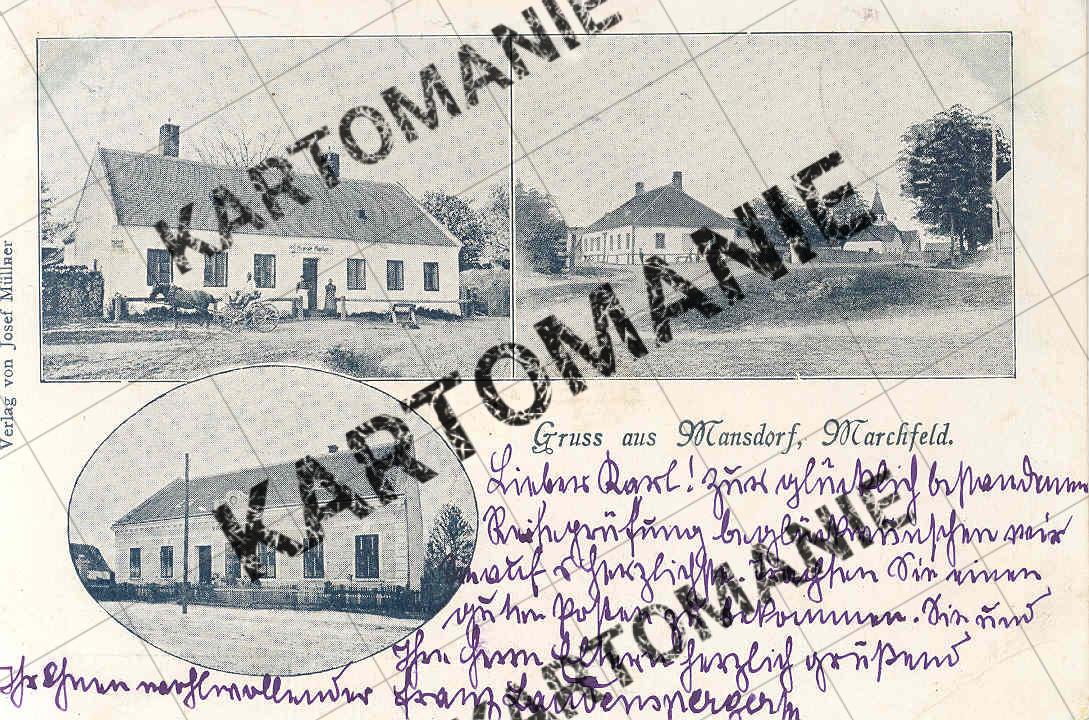 KARTOMANIE
KARTOMANIE
KARTOMANIE
Verlag von Josef Müllner
Gruss aus Mansdorf, Marchfeld.
Lieber Karl! Zur glücklich bestandenen
Reifeprüfung beglückwünschen wir
auf's herzlichste. Sie einen
guten Posten zu bekommen. Sie und
Ihre Herrn Eltern herzlich grüßend
Ihr Ihnen wohlwollender Franz
KARTOMANIE